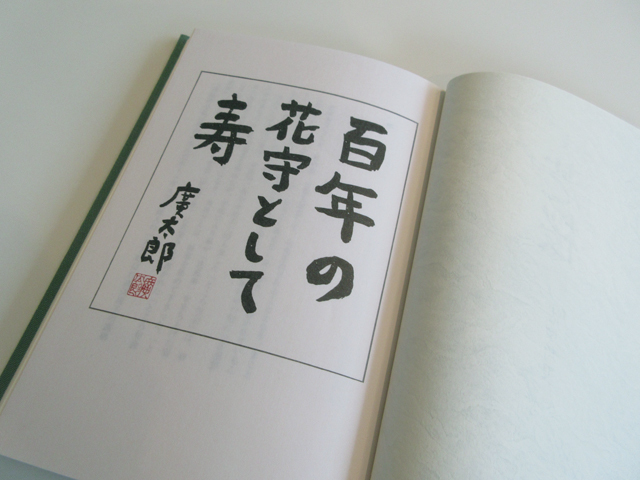 百年の
花守として
寿
廣太郎